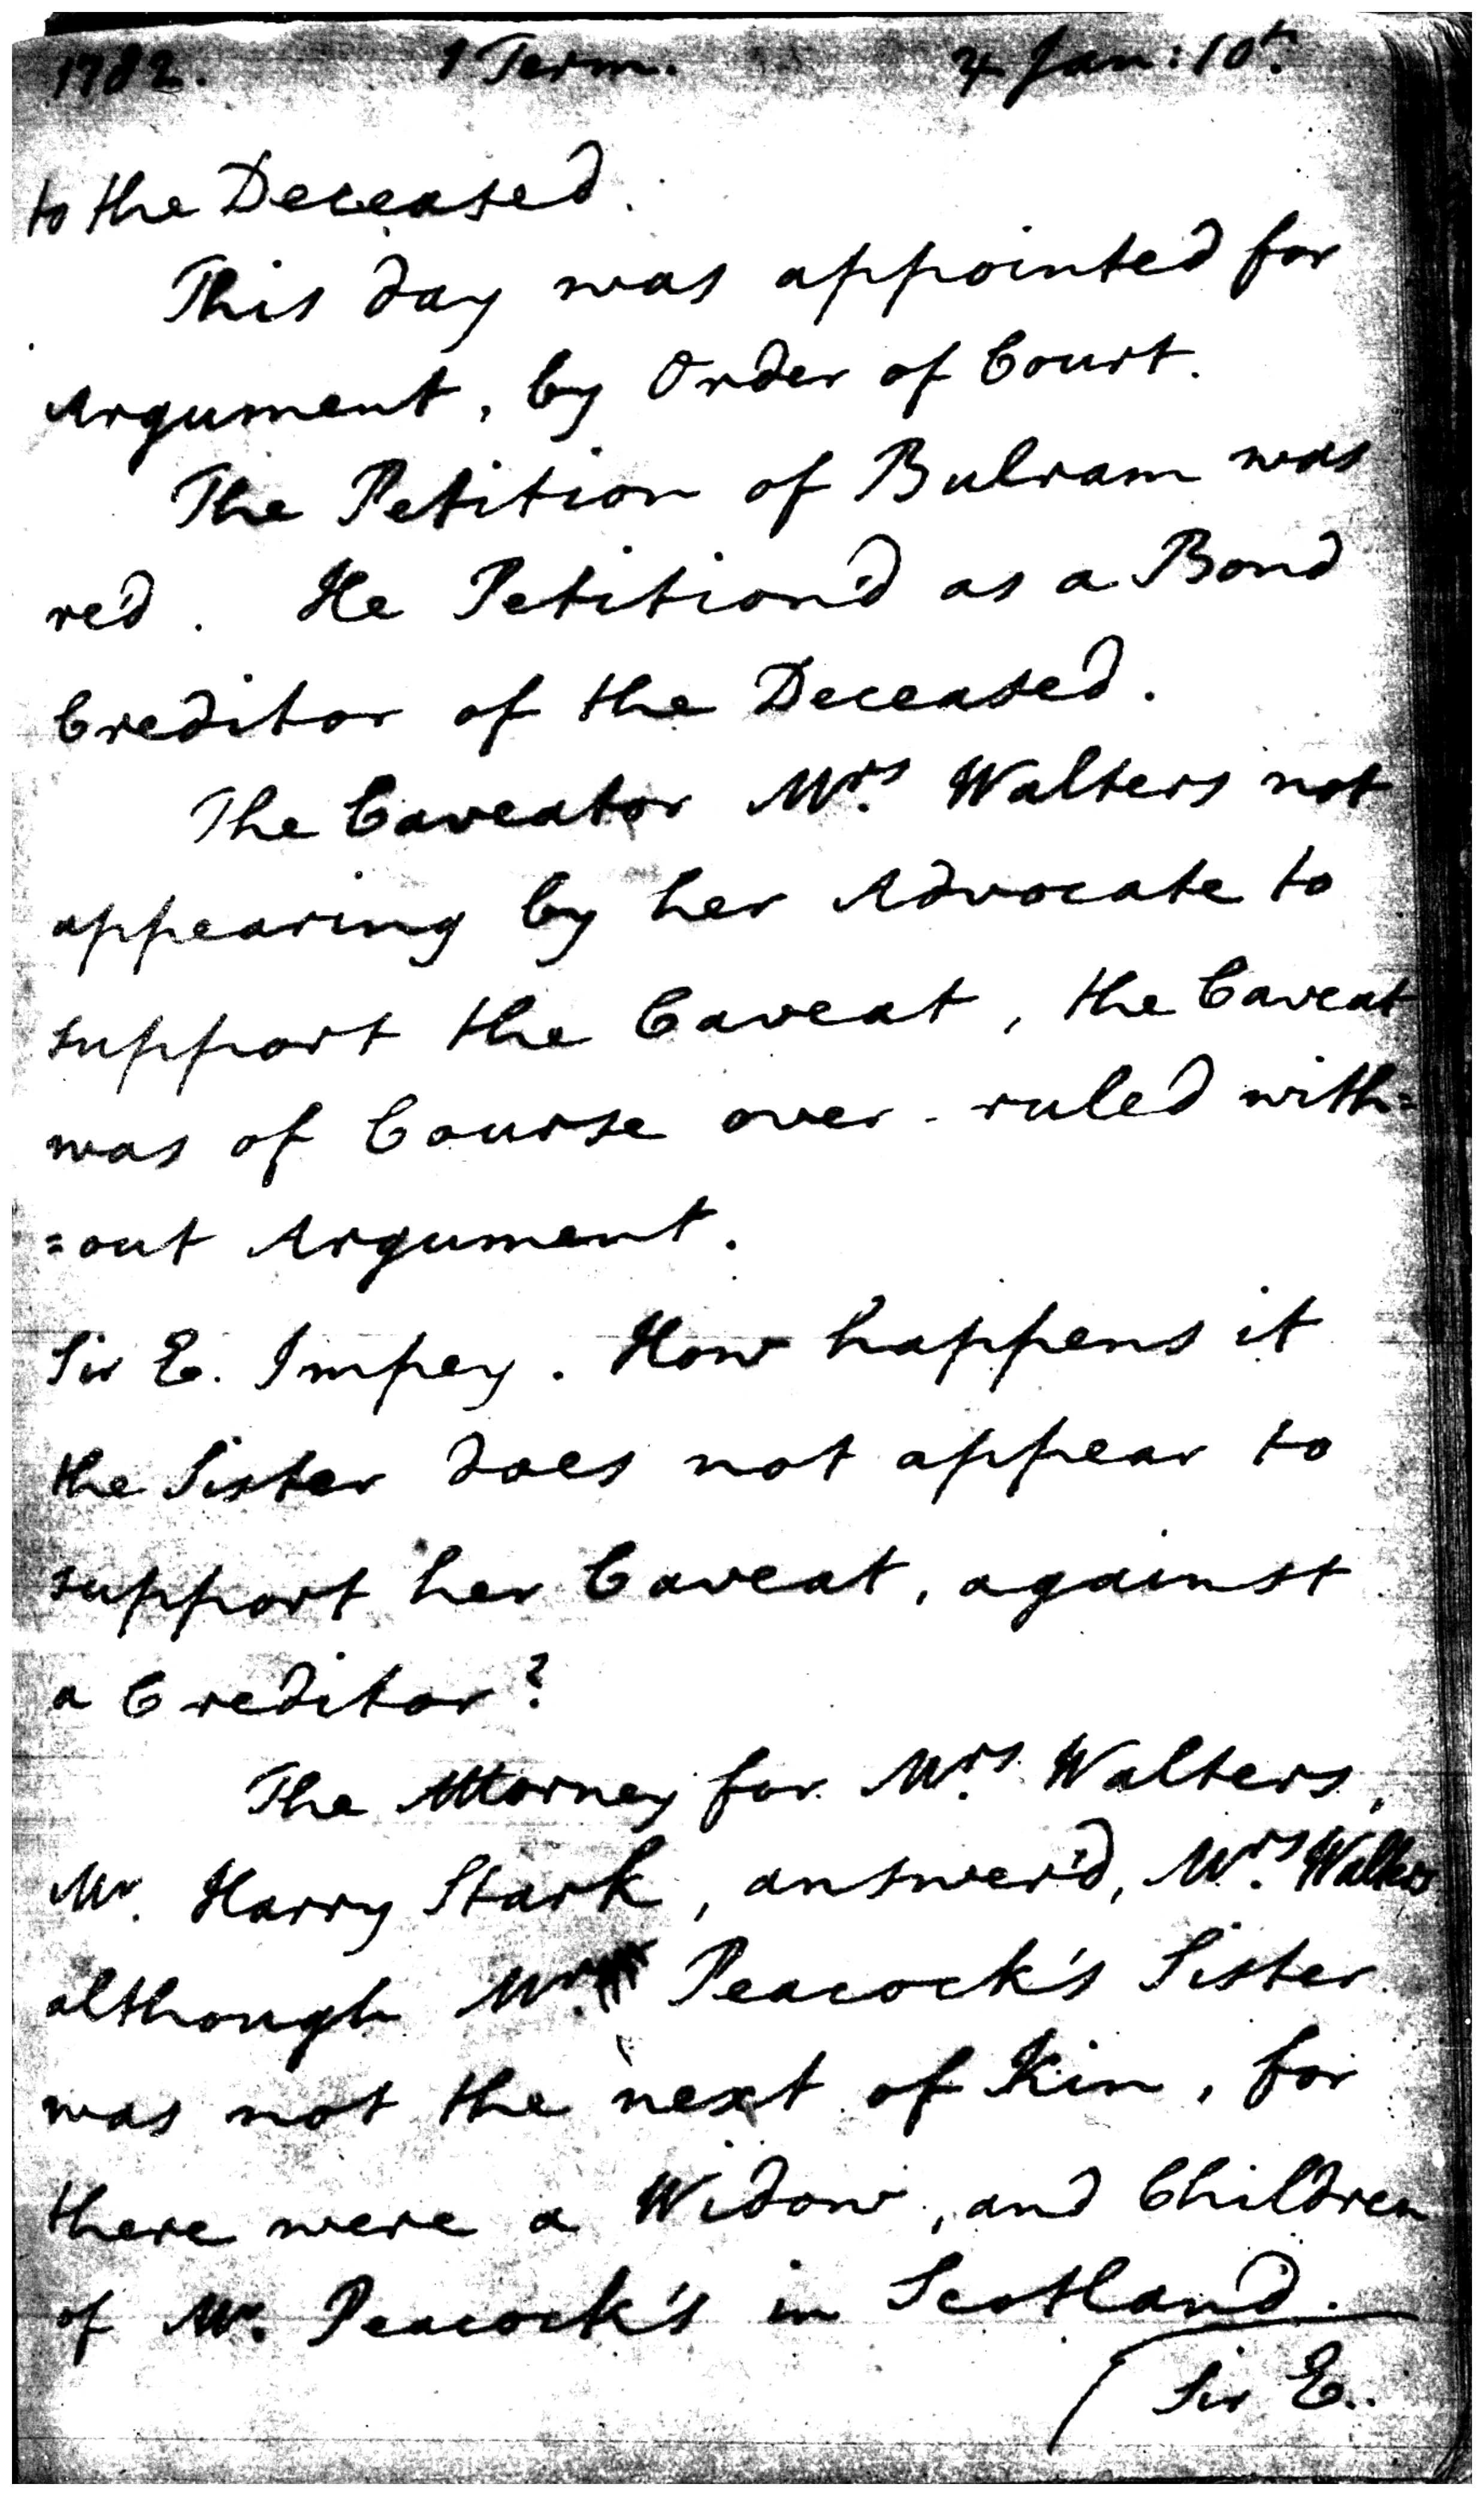 1782. 1 Term. ♃ Jan: 10th.
to the Deceased.
This day was appointed for
Argument, by Order of Court.
The Petition of Bulram was
red. He Petition'd as a Bond
Creditor of the Deceased.
The Caveator Mrs. Walters not
appearing by her Advocate to
support the Caveat, the Caveat
was of Course over-ruled with=
=out Argument.
Sir E. Impey. How happens it
the Sister does not appear to
support her Caveat, against
a Creditor?
The Attorney for Mrs. Walters,
Mr. Harry Stark, answer'd, Mrs. Walters
although Mr. Peacock's Sister
was not the next of Kin, for
there were a Widow, and Children
of Mr. Peacock's in Scotland.
Sir E.